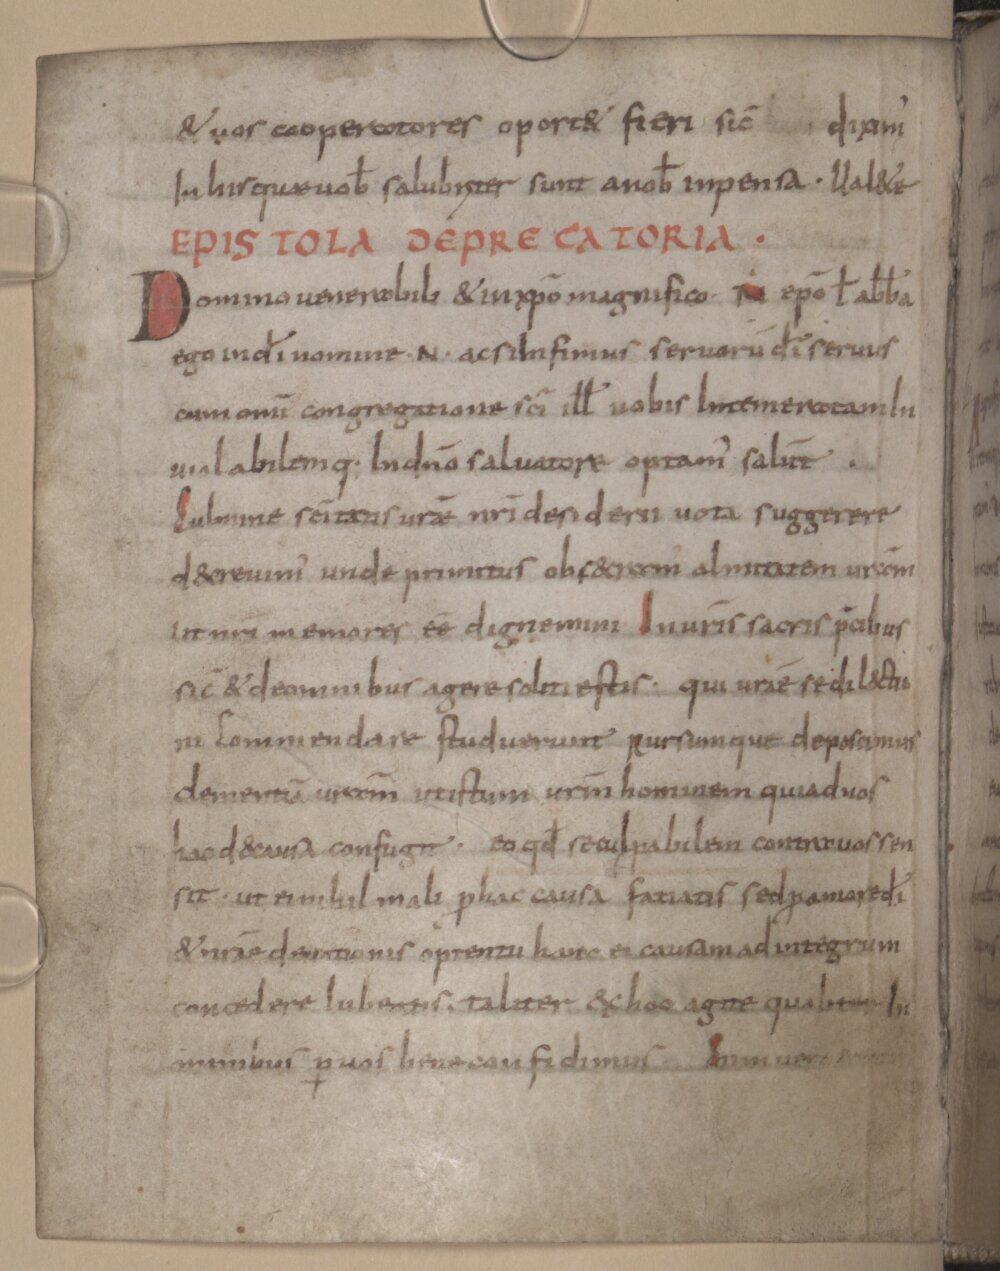 & uos cooperatores oport& fieri sic̄ diximꝰ
In hisquæuob̄ salubriter sunt anob̄ inpensa · Ual&e
EPISTOLA DEPRECATORIA ·
Domino uenerabili & inxp̄o magnifico · N epō ł abb̄a
ego indī nomine · N · acsi Infimus seruorū dī seruus
cum omī congregatione scī ill̄ uobis Intemeratam In
uiolabilemq· Indn̄o saluatore optamꝰ salūt .
Iubente sc̄itatis urāe nr̄i desiderii uota suggerere
d&reuimꝰ unde primitus obs&ramꝰ almitatem urām
ut nr̄i memores eē dignemini Inur̄is sacris p̄cibus
sic̄ & deomnibus agere soliti estis · qui urāe se dil&tio
ni Commendare studuerunt Rursumque deposcimus
clementiā urām ut istum ur̄m hominem quiaduos
hac d&causa confugit · eo qd̄ se culpabilem contrauos sen
sit · ut ei nihil mali p̱ hac causa faciatis sed p̱amore dī
& urāe deuotionis optentu hanc ei causam ad integrum
concedere Iubeatis . taliter &hoc agite qualiter In
omnibus p̱ uos bene confidimus